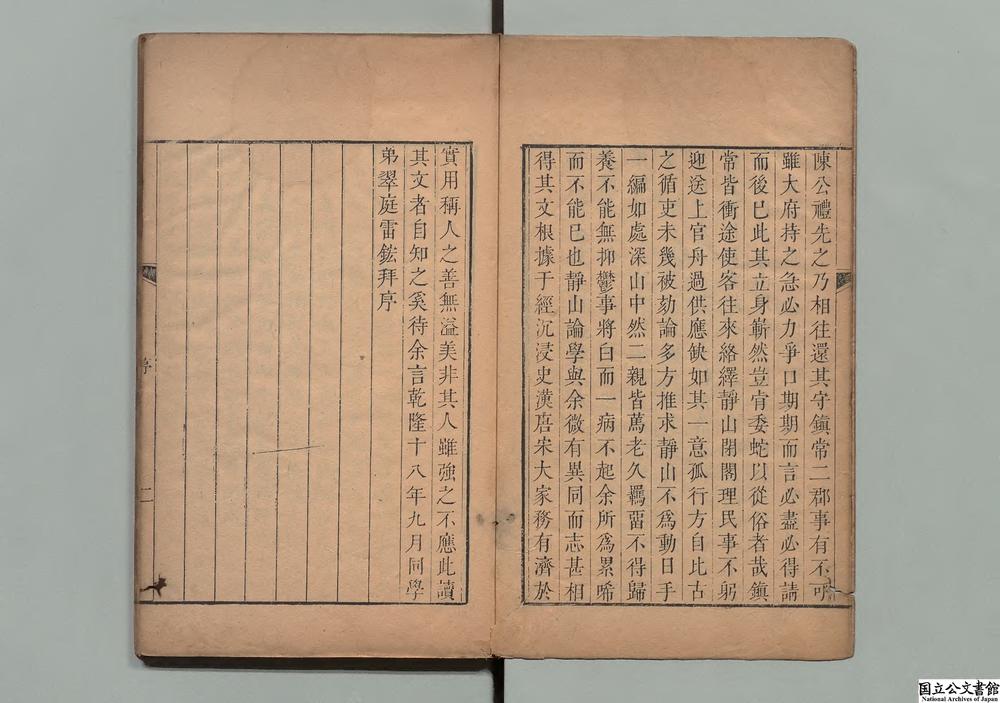 陳公禮先之乃相往還其守鎭常二郡事有不可
雖大府持之急必力爭口期期而言必盡必得請
而後已此其立身嶄然豈肯委蛇以從俗者哉鎭
常皆衝途使客往來絡繹靜山閉閣理民事不躬
迎送上官舟過供應缺如其一意孤行方自比古
之循吏未幾被劾論多方推求靜山不爲動日手
一編如處深山中然二親皆篤老久羈畱不得歸
養不能無抑鬱事將白而一病不起余所爲累唏
而不能已也靜山論學與余微有異同而志甚相
得其文根據于經沉浸史漢唐宋大家務有濟於
實用稱人之善無溢美非其人雖強之不應此讀
其文者自知之奚待余言乾隆十八年九月同學
弟翠庭雷鋐拜序
序
二
国立公文書館
National Archives of Japan